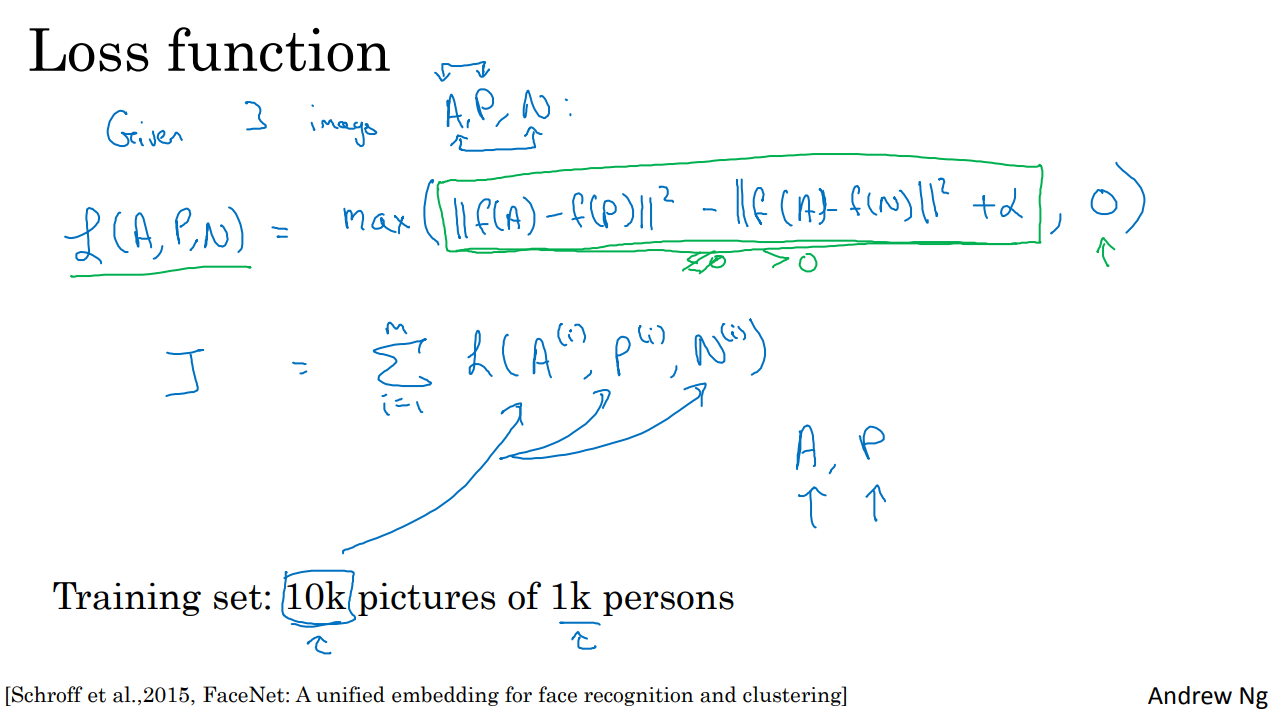 Loss function
Given 3 images A, P, N:
ℒ(A, P, N) = max(||f(A) - f(P)||² - ||f(A) - f(N)||² + α, 0)
> 0
J = ∑ᵢ₌₁ᴹ ℒ(A⁽ⁱ⁾, P⁽ⁱ⁾, N⁽ⁱ⁾)
A, P
Training set: 10k pictures of 1k persons
[Schroff et al.,2015, FaceNet: A unified embedding for face recognition and clustering]
Andrew Ng